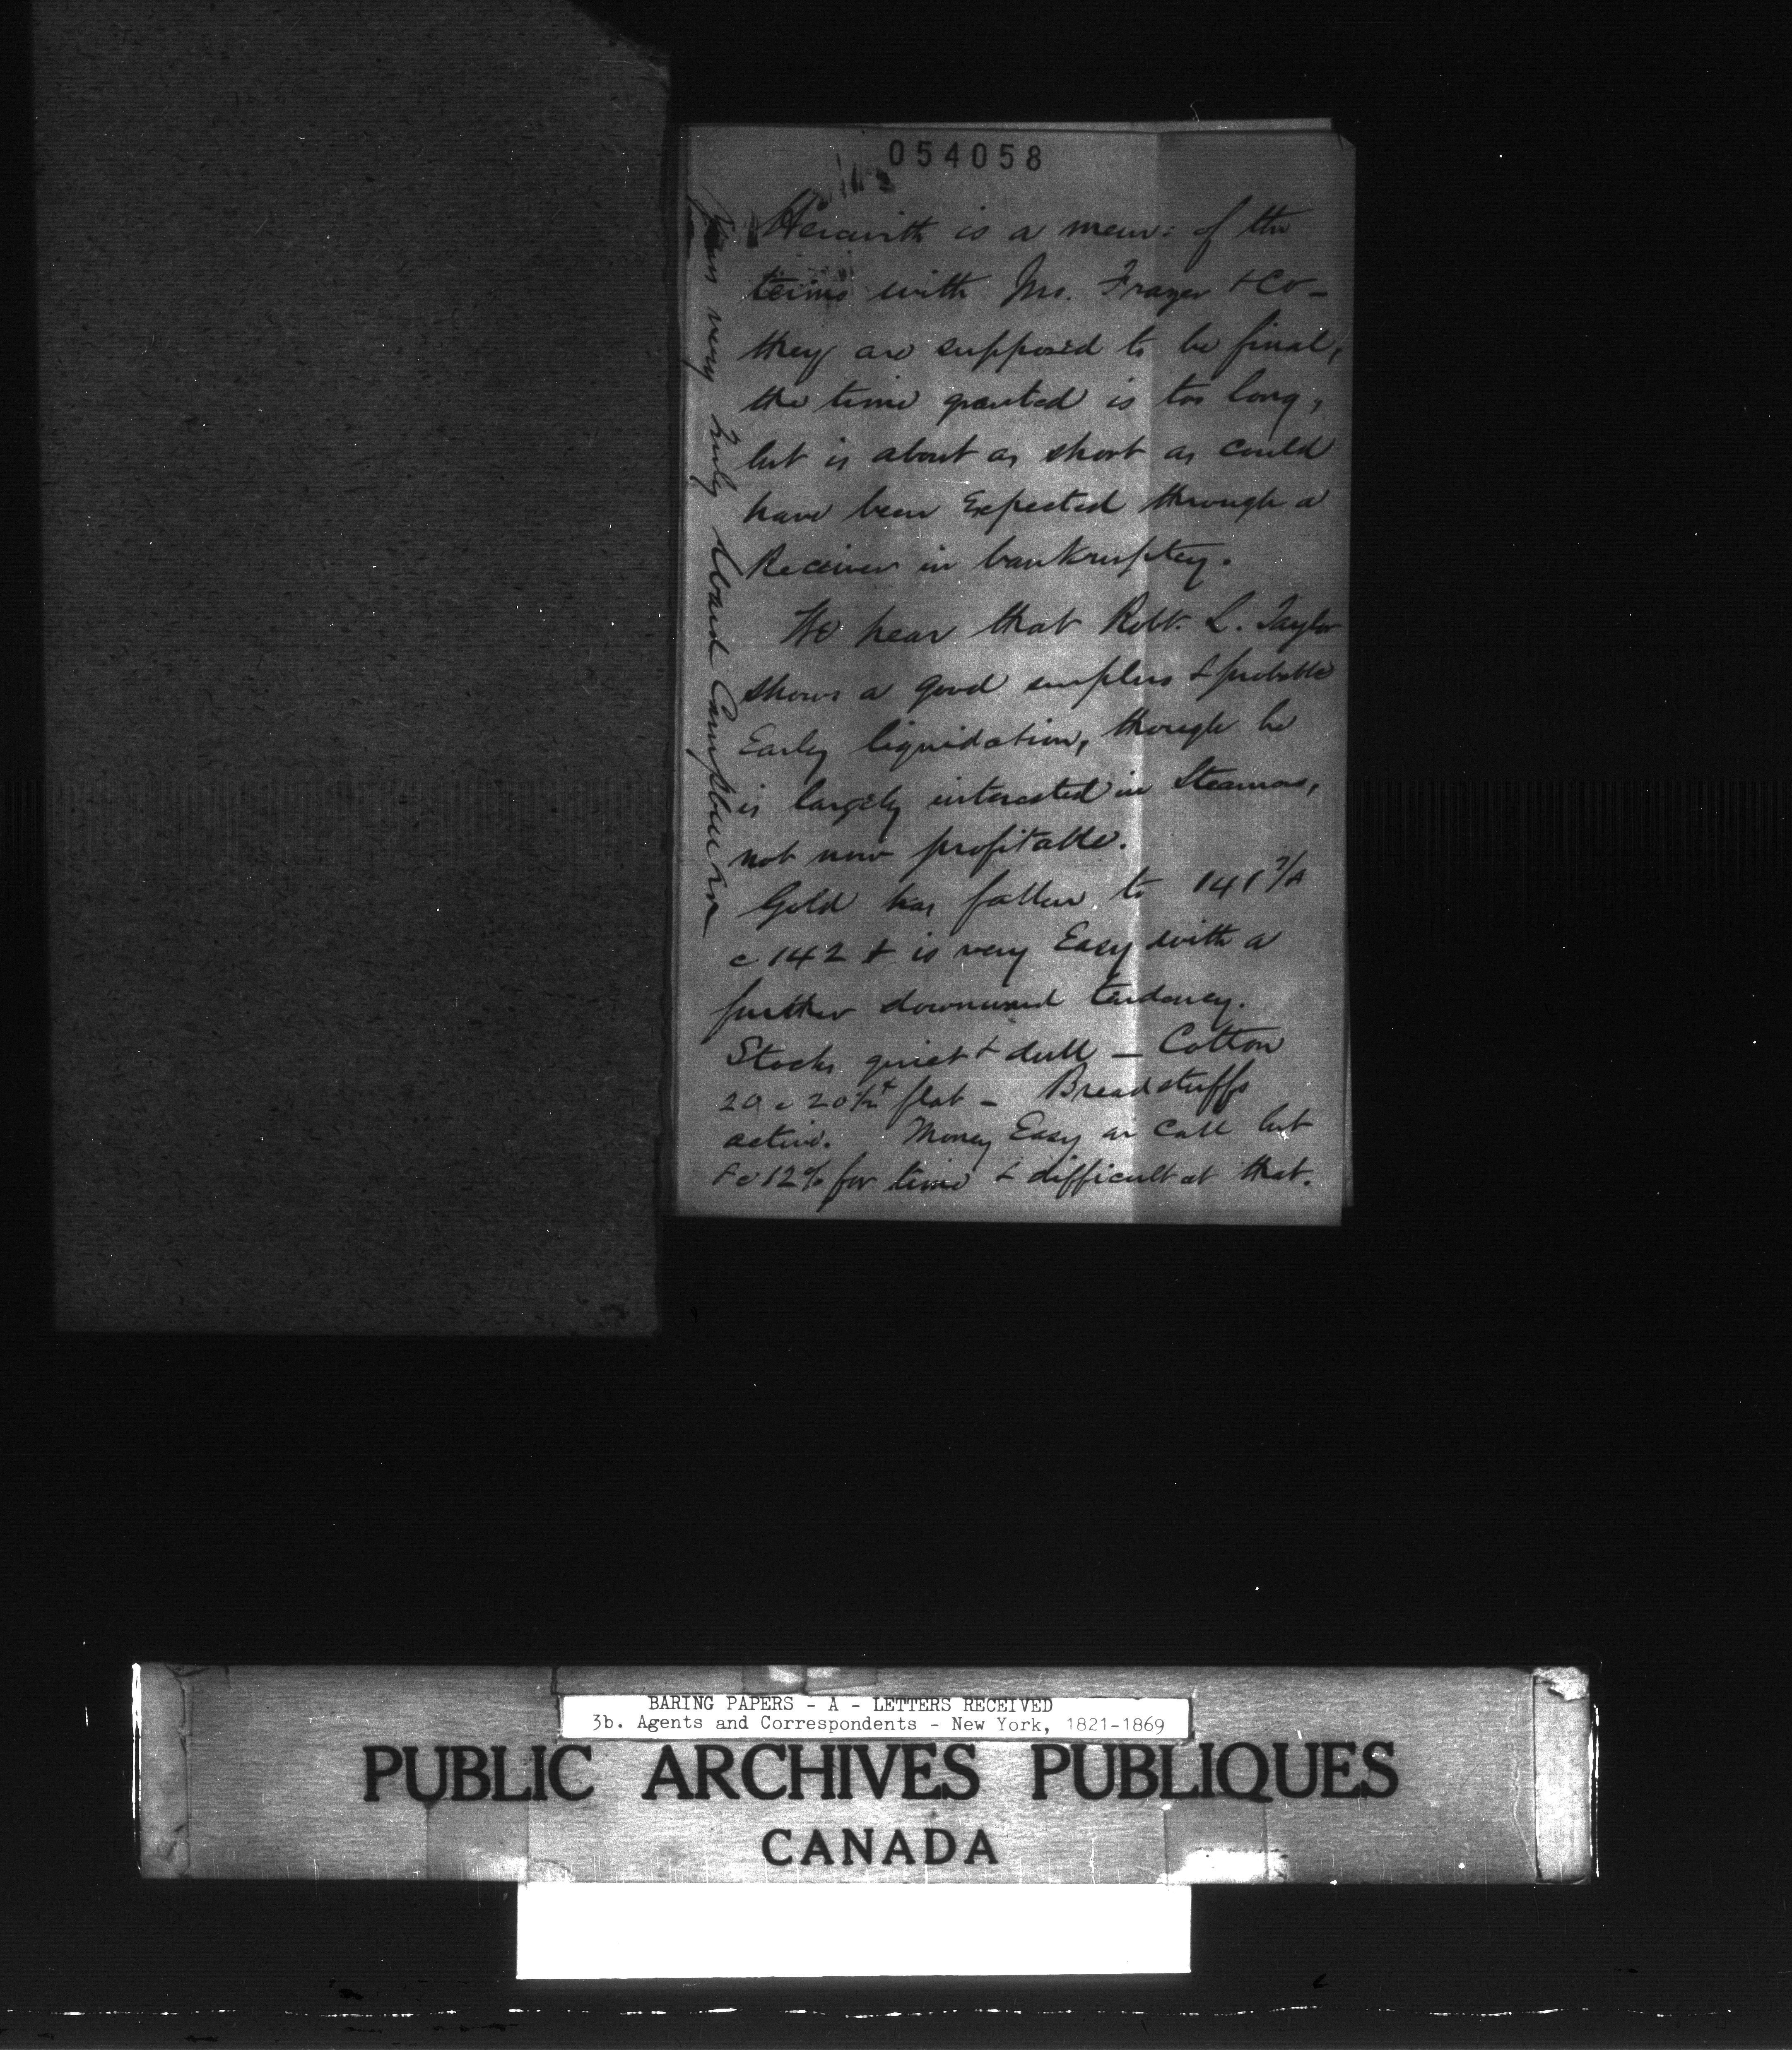 054058
Herewith is a mem: of the
terms with Jno. Frazer + Co –
they are supposed to be final,
the time granted is too long,
but is about as short as could
have been Expected through a
Receiver in bankruptcy.
We hear that Robt. L. Taylor
shows a good surplus & probable
Early liquidation, though he
is largely interested in Steamers,
not now profitable.
Gold has fallen to 141 7/8
@ 142 & is very Easy with a
further downward tendency.
Stocks quiet & dull – Cotton
20 @ 20½ flat – Breadstuffs
active. Money Easy on Call but
@ 12% for time & difficult at that.
Yours very truly Ward Campbell
BARING PAPERS - A - LETTERS RECEIVED
3b. Agents and Correspondents - New York, 1821-1869
PUBLIC ARCHIVES PUBLIQUES
CANADA